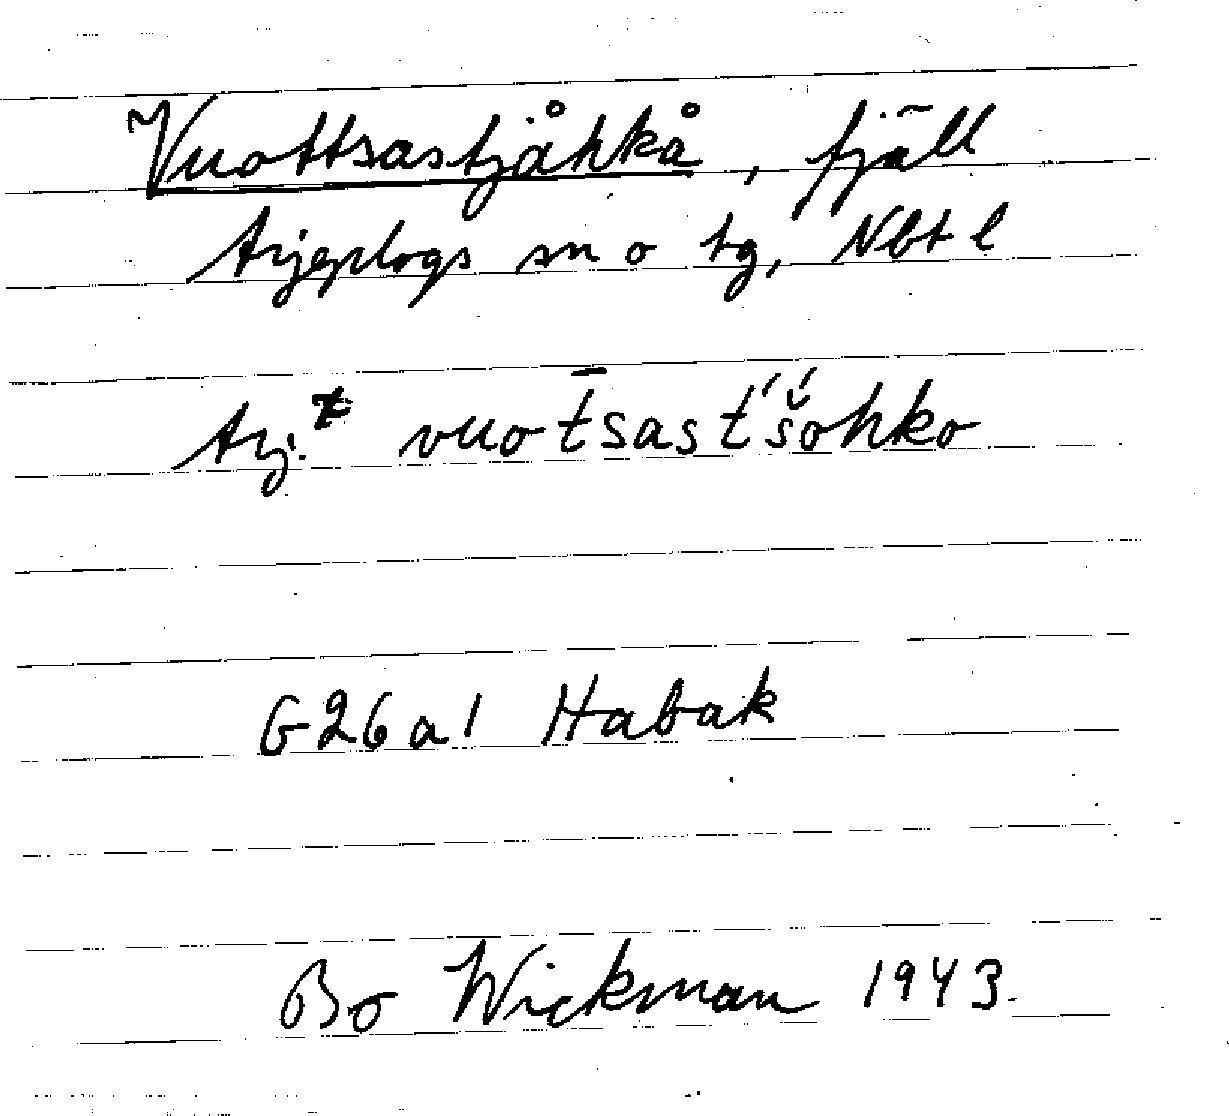 Vuottsastjåhkå, fjäll
Arjeplogs sn o tg, Nbt l
Arj. vuot̄sast́šohko
G26a1 Habak
Bo Wickman 1943.